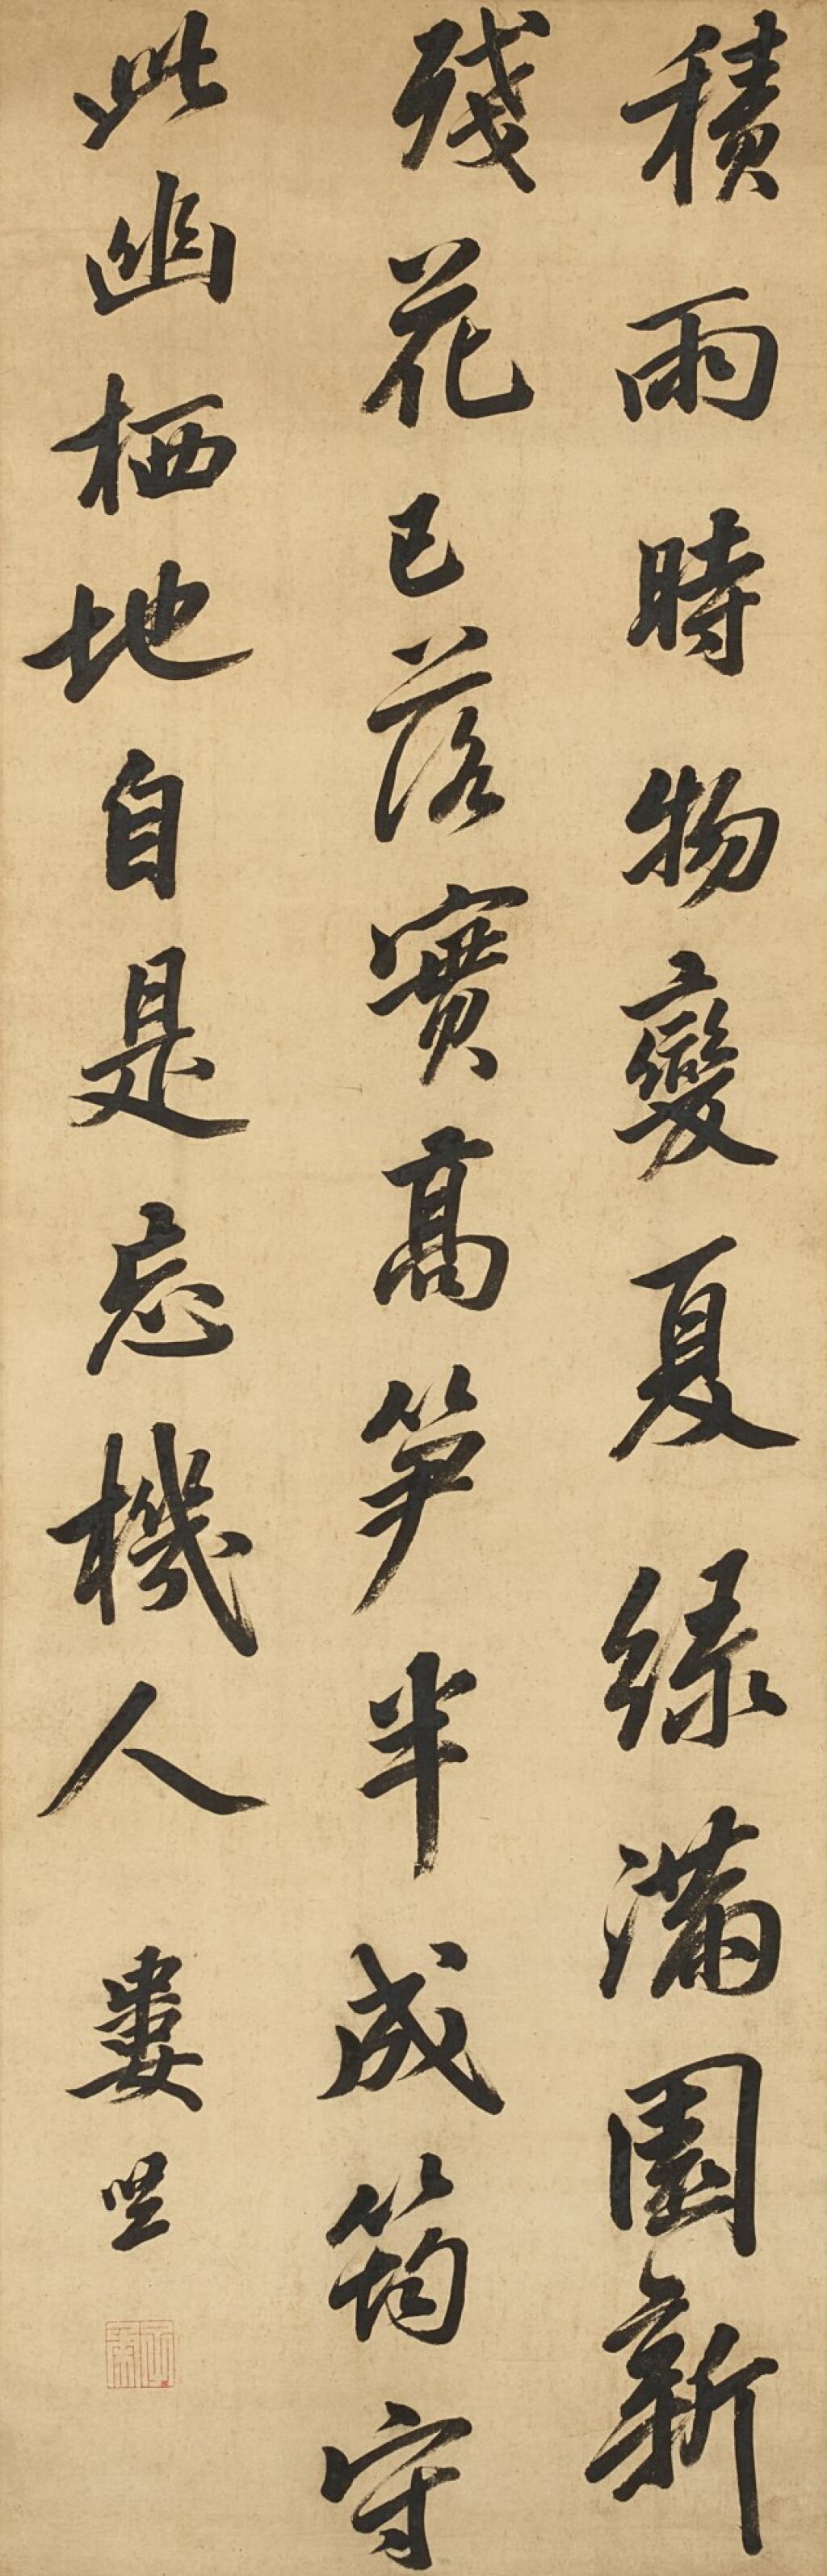 積雨時物變夏綠滿園新
殘花已落實高筍半成筠守
此幽栖地自是忘機人
婁坚